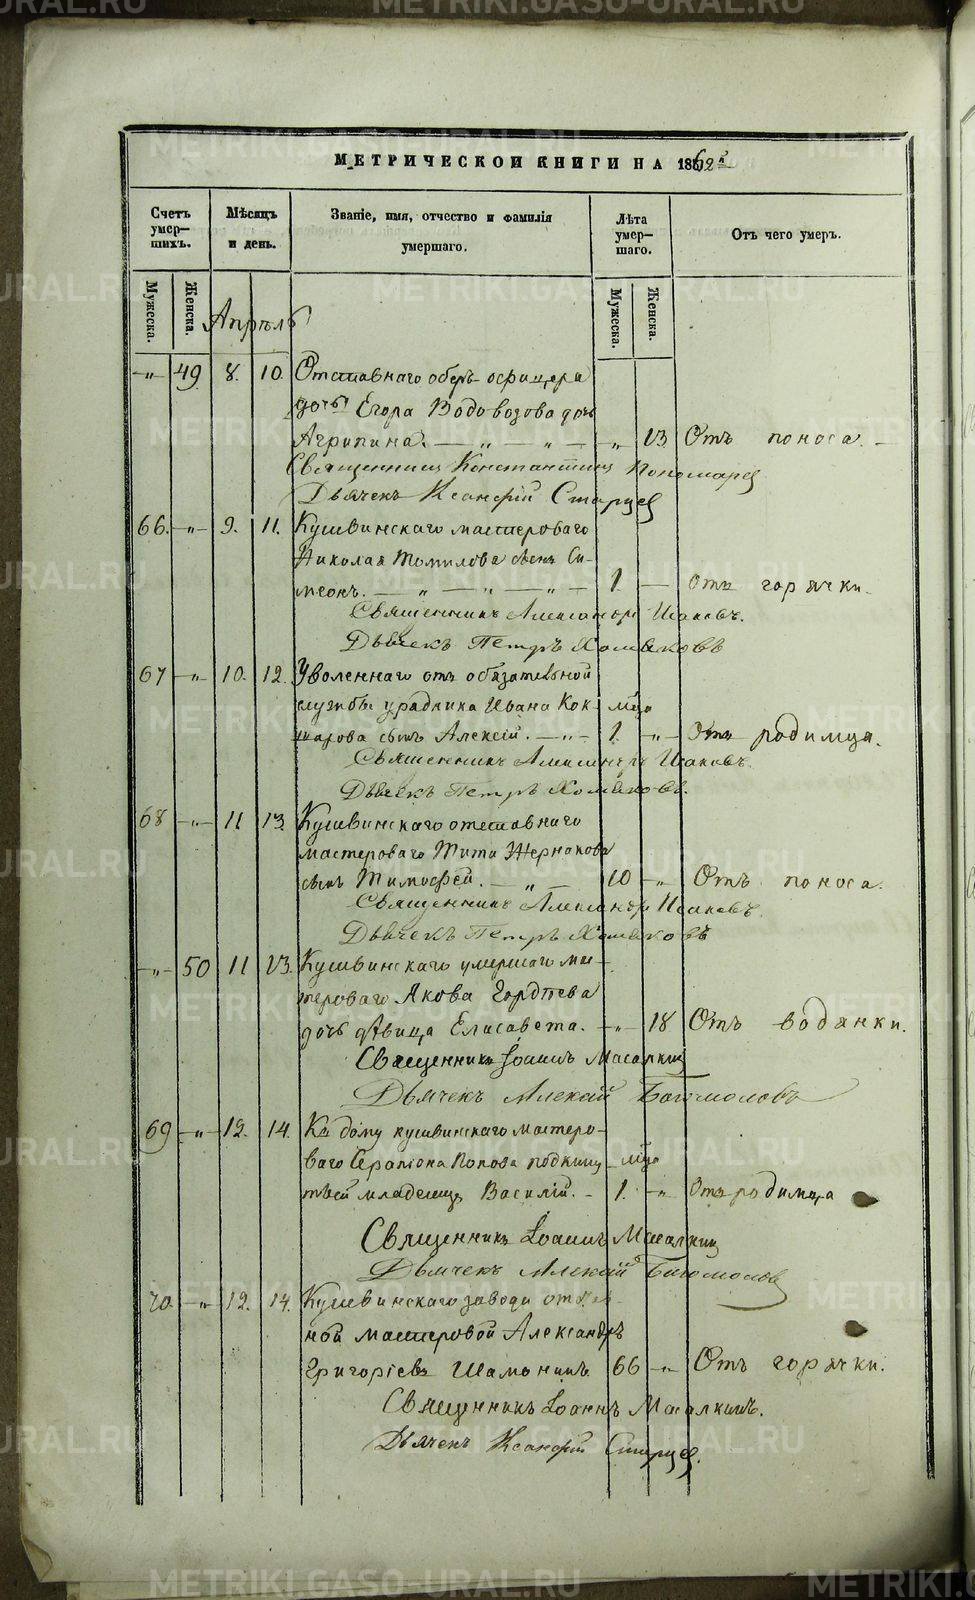 METRIKI.GASO-URAL.RU
МЕТРИЧЕСКОЙ КНИГИ НА 1862й
Счетъ умер-
шихъ.
Мѣсяцъ
и день.
Званіе, имя, отчество и фамилія
умершаго.
Лѣта
умер-
шаго.
Отъ чего умеръ.
Мужеска.
Женска.
Мужеска.
Женска.
Апрѣль
-„- 49 8. 10. Отставнаго оберъ-офицера
дочь Егора Водовозова дочь
Агрипина. — „ — „ — „ 13 Отъ поноса. -
Священникъ Константинъ Пономарев
Дьячекъ Ксанфій Старцев
66. -„- 9. 11. Кушвинскаго мастероваго
Николая Томилова сынъ Си-
меонъ. — „ — „ — „ — 1. — Отъ горячки.
Священникъ Александръ Исаковъ.
Дьячекъ Петръ Хомяковъ
67 -„- 10. 12. Уволеннаго отъ обязательной
службы урядника Ивана Кок- мца
шарова сынъ Алексій. -„- 1. -„- Отъ родимца.
Священникъ Александръ Исаковъ.
Дьячекъ Петръ Хомяковъ.
68 -„- 11 13. Кушвинскаго отставнаго
мастероваго Тита Жернакова
сынъ Тимофей. — „ — 10 -„- Отъ поноса.
Священникъ Александръ Исаковъ.
Дьячекъ Петръ Хомяковъ
-„- 50 11 13. Кушвинскаго умершаго мас-
тероваго Якова Гордѣева
дочь дѣвица Елисавета. -„- 18 Отъ водянки.
Священникъ Іоаннъ Масалкин
Дьячекъ Алексій Богомоловъ
69 -„- 12. 14. Къ дому кушвинскаго мастеро-
ваго Серапіона Попова подкину- мца
тый младенецъ Василій. - 1. -„- Отъ родимца
Священникъ Іоаннъ Масалкин
Дьячекъ Алексій Богомолов
70. -„- 12. 14. Кушвинскаго завода
ной мастеровой Александръ
Григоріевъ Шамонинъ 66 -„- Отъ горячки.
Священникъ Іоаннъ Масалкинъ.
Дьячекъ Ксанфій Старцев.